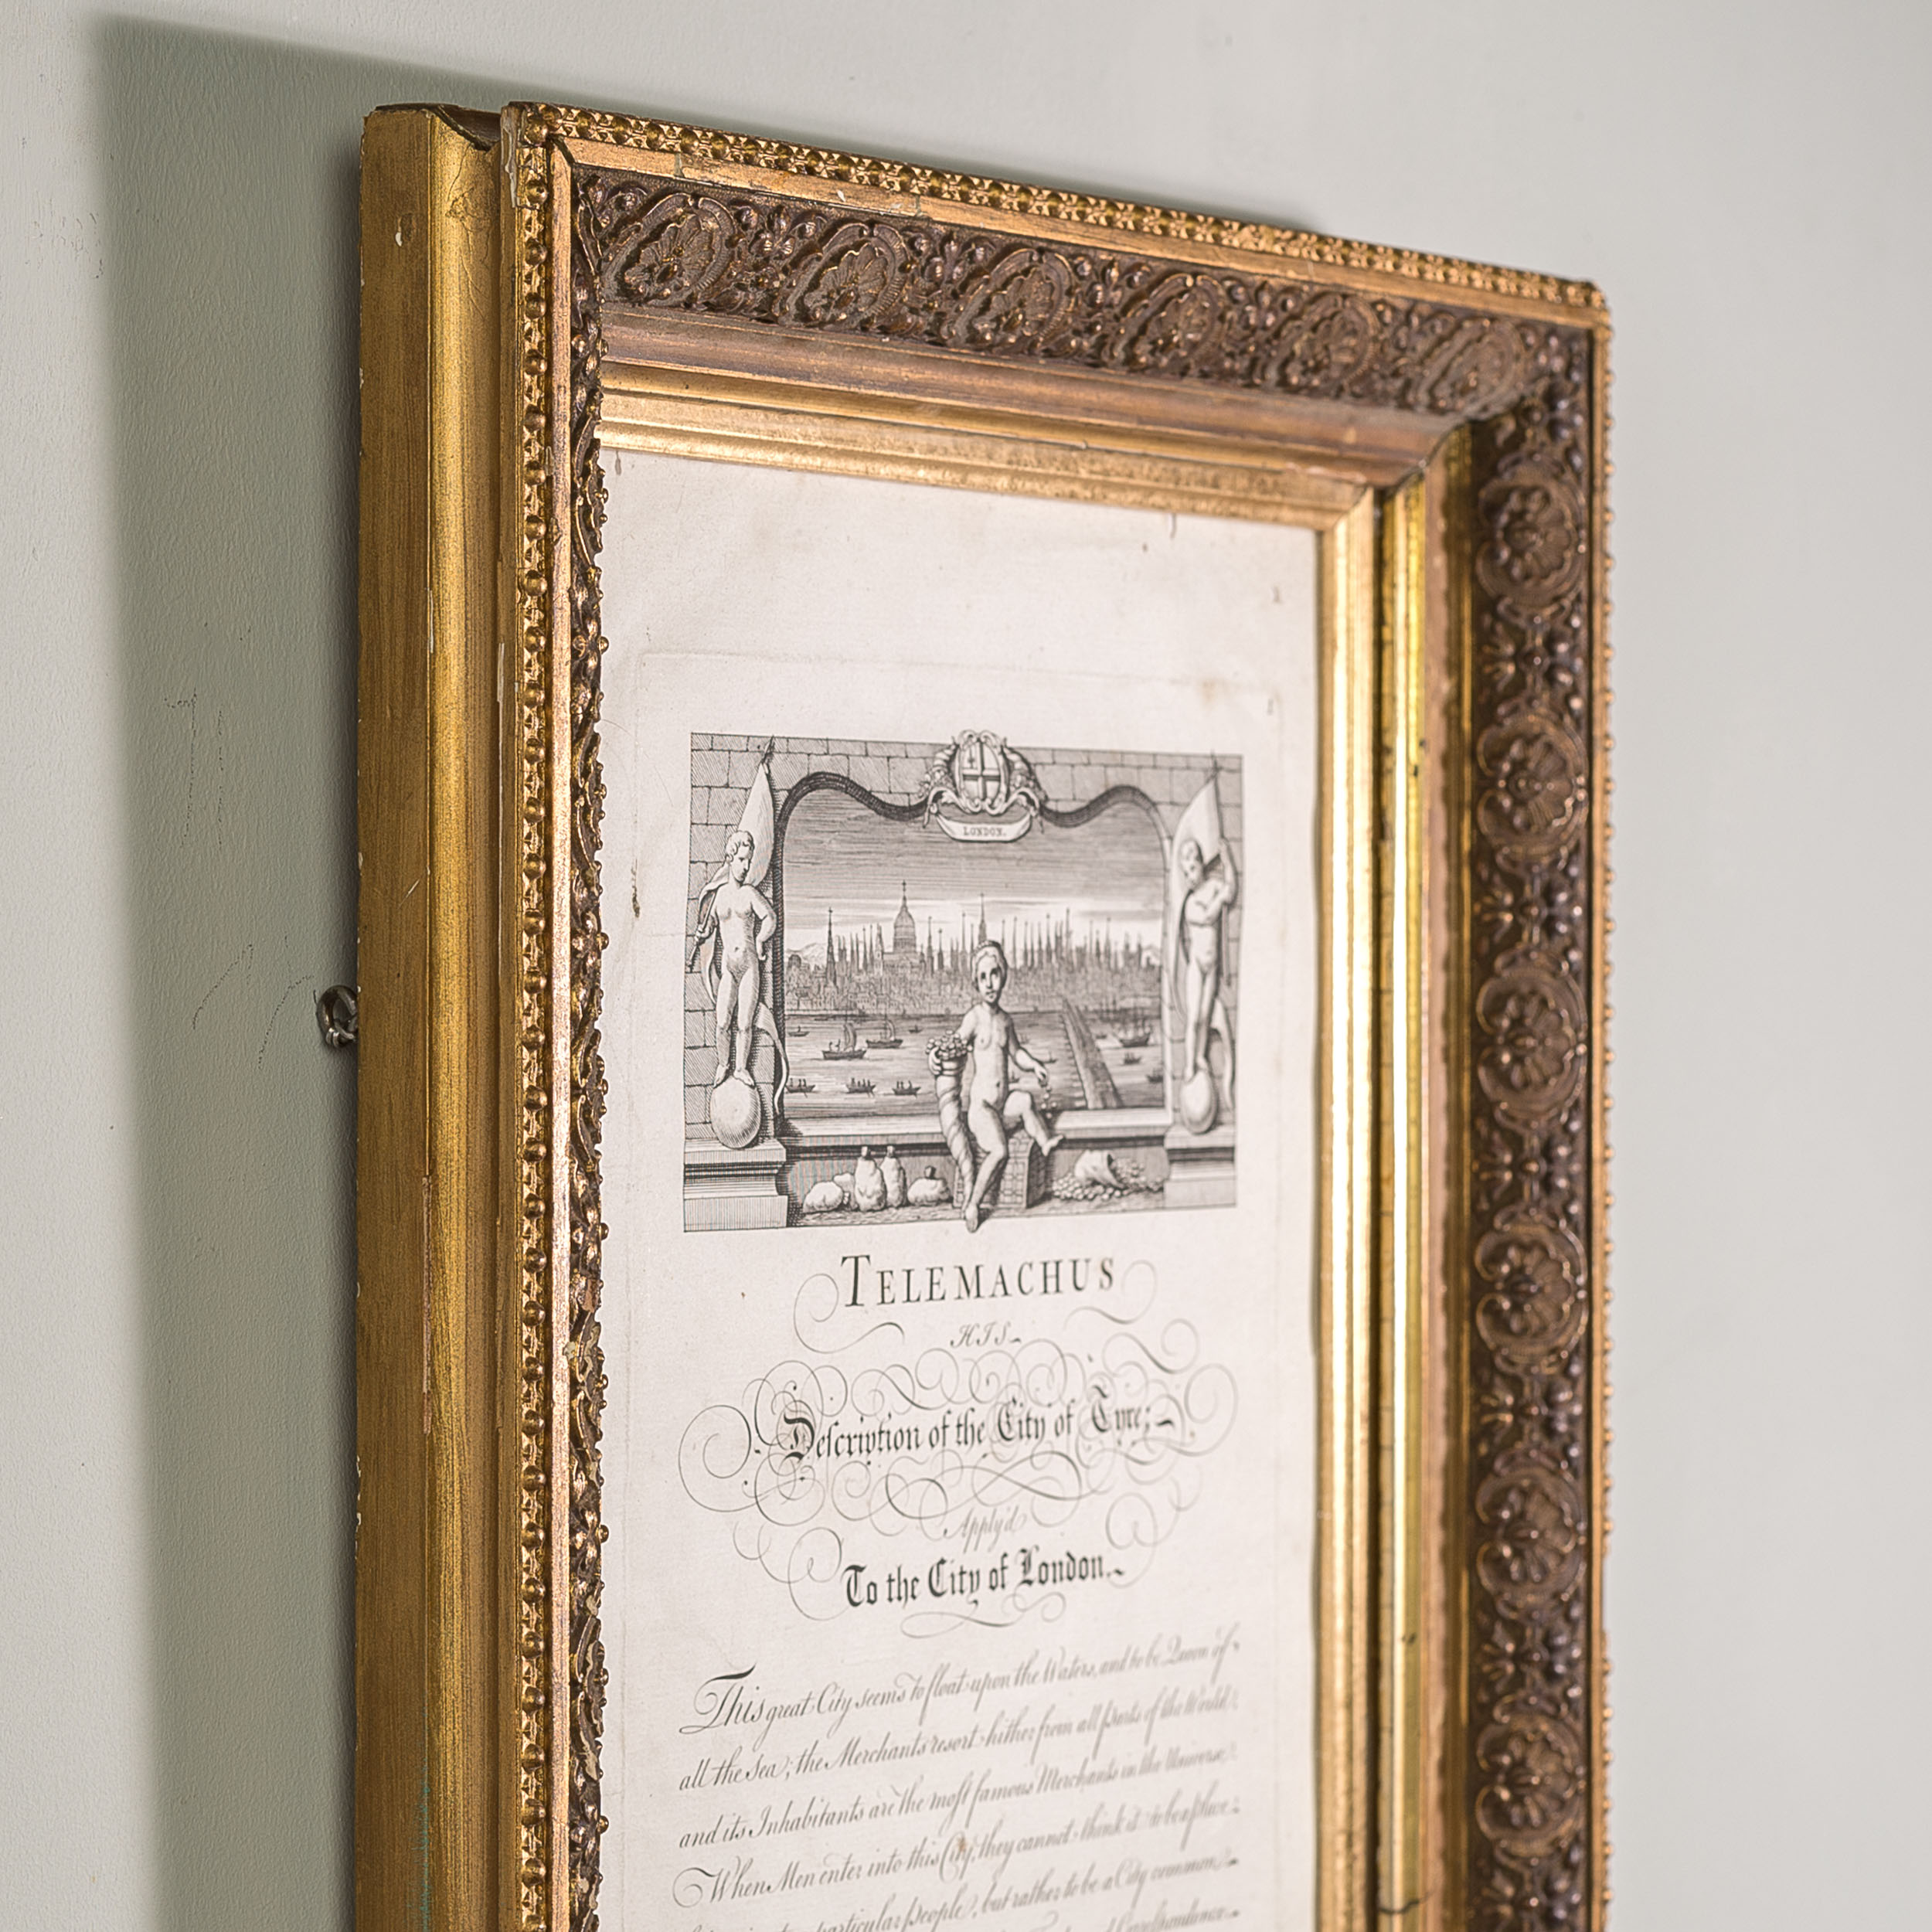 LONDON.
TELEMACHUS
HIS
Deſcription of the City of Tyre;
Apply'd
To the City of London.
This great City seems to float upon the Waters, and to be Queen of
all the Sea; the Merchants resort hither from all Parts of the World
and its Inhabitants are the moſt famous Merchants in the Universe:
When Men enter into this City, they cannot think it to be a place
particular People, but rather to be a City common